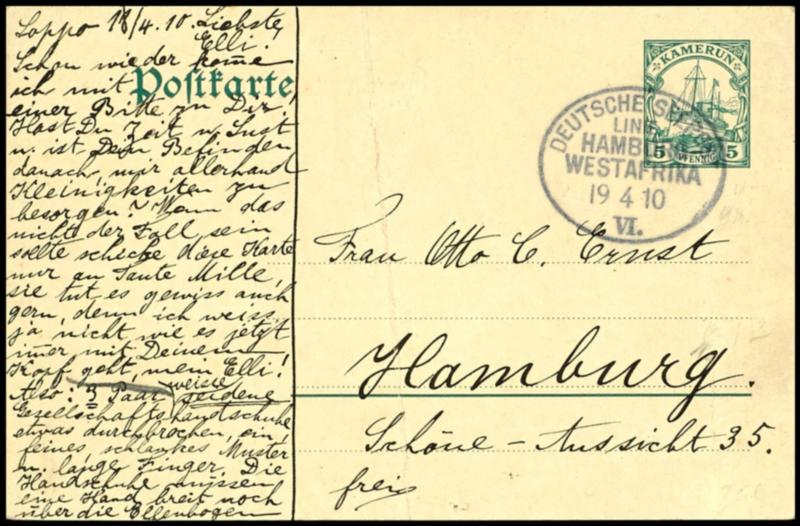 Soppo 18/4.10. Liebste
Elli!
Schon wieder kom̅e
ich mit
einer Bitte zu Dir,
Hast Du Zeit u. Lust
u. ist Dein Befinden
danach, mir allerhand
Kleinigkeiten zu
besorgen? Wenn das
nicht der Fall sein
sollte schicke diese Karte
nur an Tante Mille,
sie tut es gewiss auch
gern, denn ich weiss
ja nicht wie es jetzt
im̅er mit Deinem
Kopf geht, mein Elli!
Also: 3 Paar weisse seidene
Gesellschaftshandschuhe
etwas durchbrochen, ein
feines, schlankes Muster
u. lange Finger. Die
Handschuhe müssen
eine Hand breit noch
über die Ellenbogen
Postkarte
KAMERUN
5 PFENNIG 5
DEUTSCHE SEEPOST
LINIE
HAMBURG
WESTAFRIKA
19 4 10
VI.
Frau Otto C. Ernst
Hamburg.
Schöne-Aussicht 35.
frei